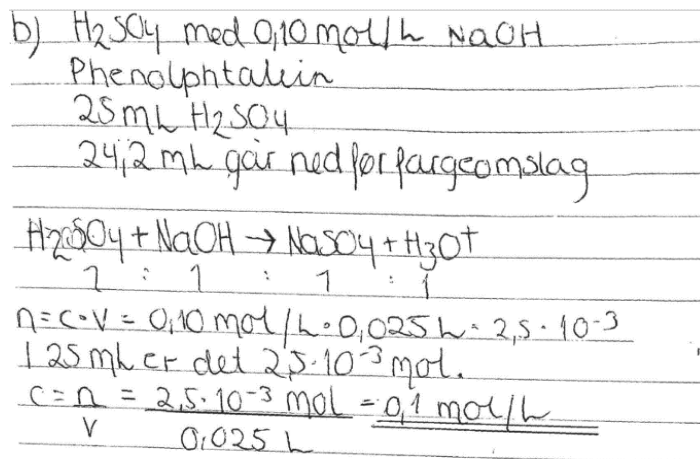 b) H₂SO₄ med 0,10 mol/L NaOH
Phenolphtalein
25 mL H₂SO₄
24,2 mL går ned før fargeomslag
H₂SO₄ + NaOH → NaSO₄ + H₃O⁺
1 : 1 : 1 : 1
n = c · V = 0,10 mol/L · 0,025 L = 2,5 · 10⁻³
I 25 mL er det 2,5 · 10⁻³ mol.
c = n/V = 2,5 · 10⁻³ mol / 0,025 L = 0,1 mol/L